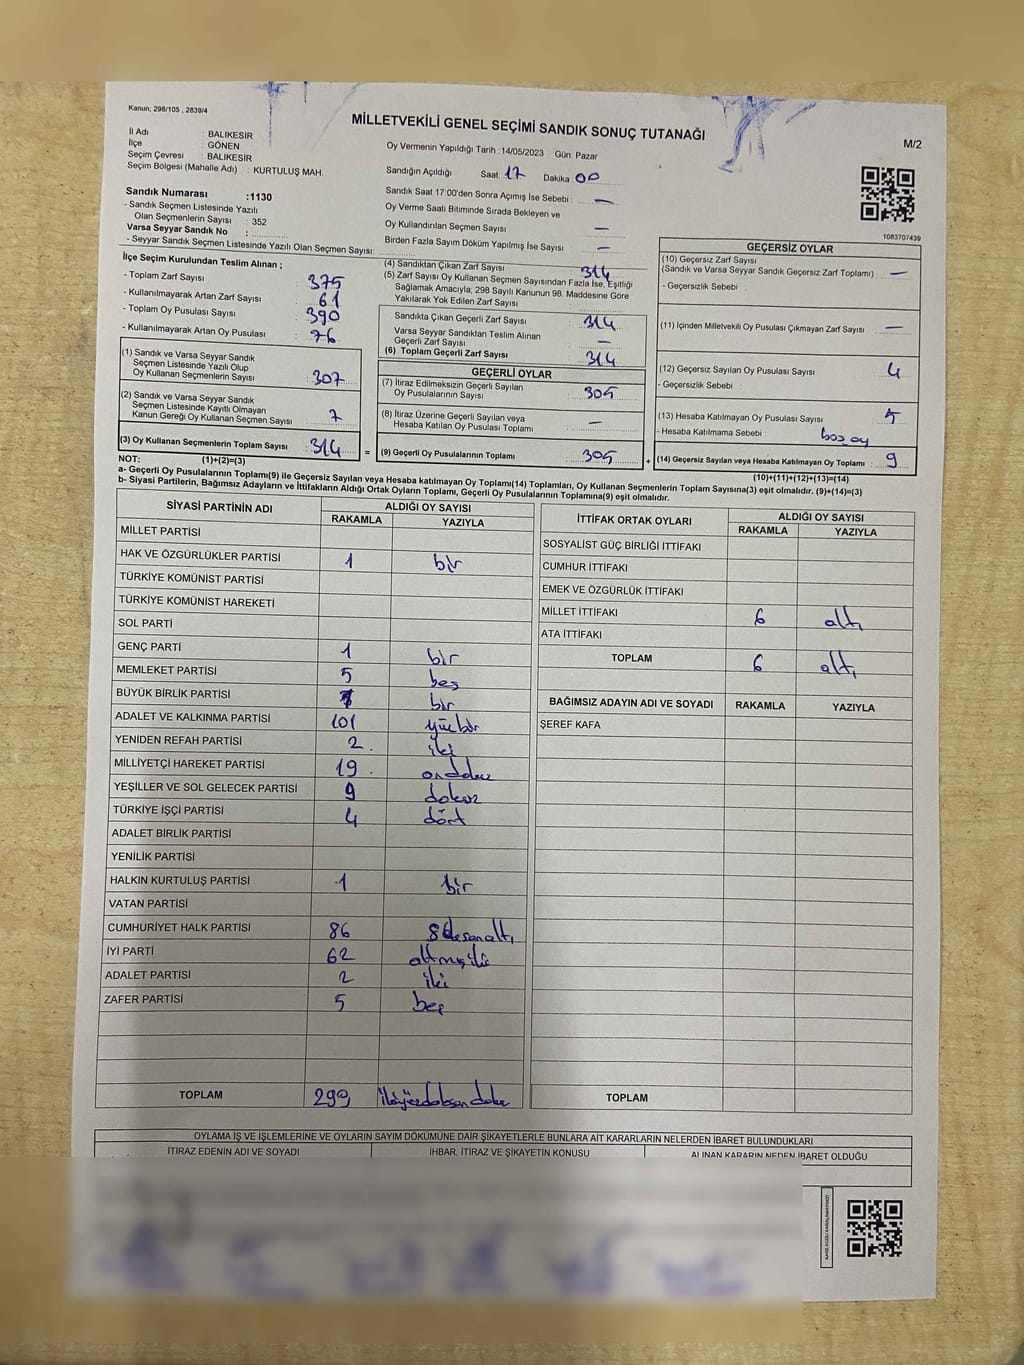 Kanun; 298/105 , 2839/4
MİLLETVEKİLİ GENEL SEÇİMİ SANDIK SONUÇ TUTANAĞI
M/2
İl Adı : BALIKESİR
İlçe : GÖNEN
Seçim Çevresi : BALIKESİR
Seçim Bölgesi (Mahalle Adı) : KURTULUŞ MAH.
Oy Vermenin Yapıldığı Tarih :14/05/2023 Gün: Pazar
Sandığın Açıldığı Saat 17 Dakika 00
Sandık Saat 17:00'den Sonra Açımış İse Sebebi : —
Oy Verme Saati Bitiminde Sırada Bekleyen ve
Oy Kullandırılan Seçmen Sayısı : —
Birden Fazla Sayım Döküm Yapılmış İse Sayısı : —
Sandık Numarası :1130
- Sandık Seçmen Listesinde Yazılı
Olan Seçmenlerin Sayısı : 352
Varsa Seyyar Sandık No :
- Seyyar Sandık Seçmen Listesinde Yazılı Olan Seçmen Sayısı:
1083707439
İlçe Seçim Kurulundan Teslim Alınan ;
- Toplam Zarf Sayısı : 375
- Kullanılmayarak Artan Zarf Sayısı : 61
- Toplam Oy Pusulası Sayısı : 390
- Kullanılmayarak Artan Oy Pusulası : 76
(1) Sandık ve Varsa Seyyar Sandık
Seçmen Listesinde Yazılı Olup
Oy Kullanan Seçmenlerin Sayısı : 307
(2) Sandık ve Varsa Seyyar Sandık
Seçmen Listesinde Kayıtlı Olmayan
Kanun Gereği Oy Kullanan Seçmen Sayısı : 7
(3) Oy Kullanan Seçmenlerin Toplam Sayısı : 314
(4) Sandıktan Çıkan Zarf Sayısı : 314
(5) Zarf Sayısı Oy Kullanan Seçmen Sayısından Fazla İse, Eşitliği
Sağlamak Amacıyla; 298 Sayılı Kanunun 98. Maddesine Göre
Yakılarak Yok Edilen Zarf Sayısı :
Sandıkta Çıkan Geçerli Zarf Sayısı : 314
Varsa Seyyar Sandıktan Teslim Alınan
Geçerli Zarf Sayısı : —
(6) Toplam Geçerli Zarf Sayısı : 314
GEÇERLİ OYLAR
(7) İtiraz Edilmeksizin Geçerli Sayılan
Oy Pusulalarının Sayısı : 305
(8) İtiraz Üzerine Geçerli Sayılan veya
Hesaba Katılan Oy Pusulası Toplamı : —
= (9) Geçerli Oy Pusulalarının Toplamı : 305
GEÇERSİZ OYLAR
(10) Geçersiz Zarf Sayısı
(Sandık ve Varsa Seyyar Sandık Geçersiz Zarf Toplamı) : —
- Geçersizlik Sebebi :
(11) İçinden Milletvekili Oy Pusulası Çıkmayan Zarf Sayısı : —
(12) Geçersiz Sayılan Oy Pusulası Sayısı : 4
- Geçersizlik Sebebi :
(13) Hesaba Katılmayan Oy Pusulası Sayısı : 5
- Hesaba Katılmama Sebebi : boş oy
+ (14) Geçersiz Sayılan veya Hesaba Katılmayan Oy Toplamı : 9
NOT: (1)+(2)=(3)
(10)+(11)+(12)+(13)=(14)
a- Geçerli Oy Pusulalarının Toplamı(9) ile Geçersiz Sayılan veya Hesaba Katılmayan Oy Toplamı(14) Toplamları, Oy Kullanan Seçmenlerin Toplam Sayısına(3) eşit olmalıdır. (9)+(14)=(3)
b- Siyasi Partilerin, Bağımsız Adayların ve İttifakların Aldığı Ortak Oyların Toplamı, Geçerli Oy Pusulalarının Toplamına(9) eşit olmalıdır.
SİYASİ PARTİNİN ADI ALDIĞI OY SAYISI
RAKAMLA YAZIYLA
MİLLET PARTİSİ
HAK VE ÖZGÜRLÜKLER PARTİSİ 1 bir
TÜRKİYE KOMÜNİST PARTİSİ
TÜRKİYE KOMÜNİST HAREKETİ
SOL PARTİ
GENÇ PARTİ 1 bir
MEMLEKET PARTİSİ 5 beş
BÜYÜK BİRLİK PARTİSİ 1 bir
ADALET VE KALKINMA PARTİSİ 101 yüzbir
YENİDEN REFAH PARTİSİ 2 iki
MİLLİYETÇİ HAREKET PARTİSİ 19 ondokuz
YEŞİLLER VE SOL GELECEK PARTİSİ 9 dokuz
TÜRKİYE İŞÇİ PARTİSİ 4 dört
ADALET BİRLİK PARTİSİ
YENİLİK PARTİSİ
HALKIN KURTULUŞ PARTİSİ 1 bir
VATAN PARTİSİ
CUMHURİYET HALK PARTİSİ 86 seksenaltı
İYİ PARTİ 62 altmışiki
ADALET PARTİSİ 2 iki
ZAFER PARTİSİ 5 beş
TOPLAM 299 ikiyüzdoksan dokuz
İTTİFAK ORTAK OYLARI ALDIĞI OY SAYISI
RAKAMLA YAZIYLA
SOSYALİST GÜÇ BİRLİĞİ İTTİFAKI
CUMHUR İTTİFAKI
EMEK VE ÖZGÜRLÜK İTTİFAKI
MİLLET İTTİFAKI 6 altı
ATA İTTİFAKI
TOPLAM 6 altı
BAĞIMSIZ ADAYIN ADI VE SOYADI RAKAMLA YAZIYLA
ŞEREF KAFA
TOPLAM
OYLAMA İŞ VE İŞLEMLERİNE VE OYLARIN SAYIM DÖKÜMÜNE DAİR ŞİKAYETLERLE BUNLARA AİT KARARLARIN NELERDEN İBARET BULUNDUKLARI
İTİRAZ EDENİN ADI VE SOYADI İHBAR, İTİRAZ VE ŞİKAYETİN KONUSU ALINAN KARARIN NEDEN İBARET OLDUĞU